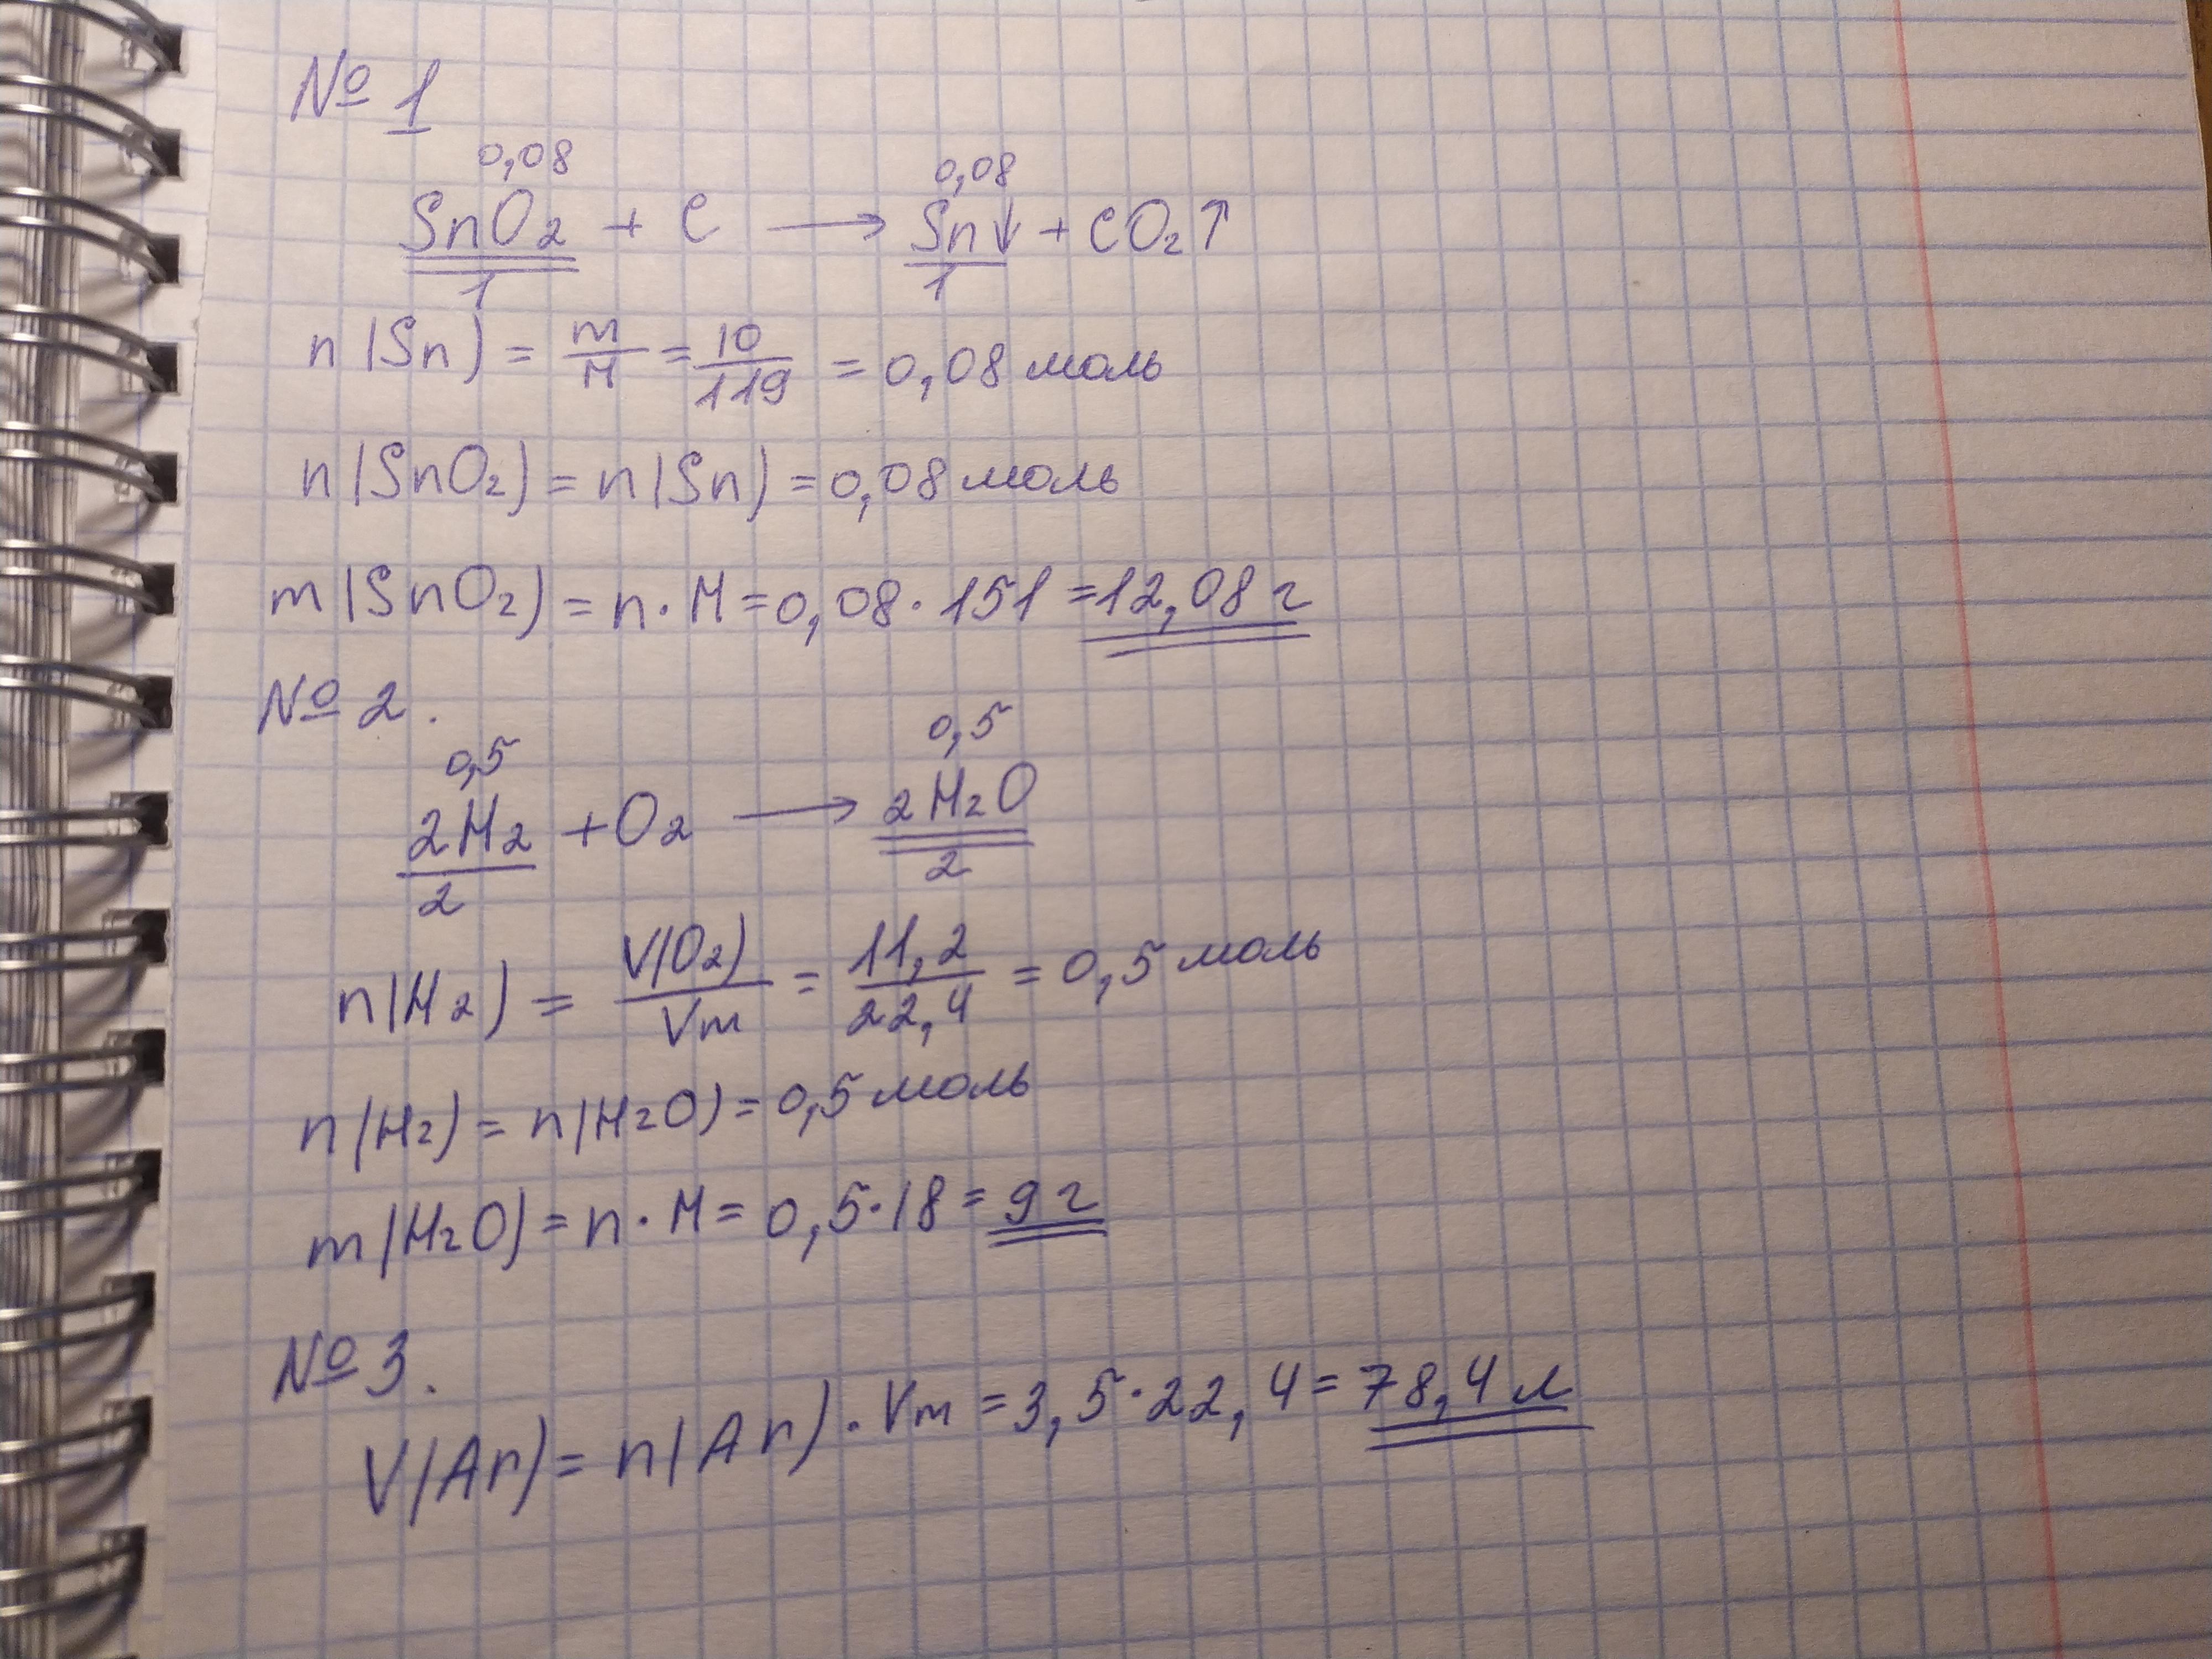 № 1
0,08 0,08
SnO₂ + C → Sn↓ + CO₂↑
1 1
n(Sn) = m/M = 10/119 = 0,08 моль
n(SnO₂) = n(Sn) = 0,08 моль
m(SnO₂) = n·M = 0,08·151 = 12,08 г
№ 2.
0,5 0,5
2H₂ + O₂ → 2H₂O
2 2
n(H₂) = V(O₂)/Vm = 11,2/22,4 = 0,5 моль
n(H₂) = n(H₂O) = 0,5 моль
m(H₂O) = n·M = 0,5·18 = 9 г
№ 3.
V(Ar) = n(Ar)·Vm = 3,5·22,4 = 78,4 л